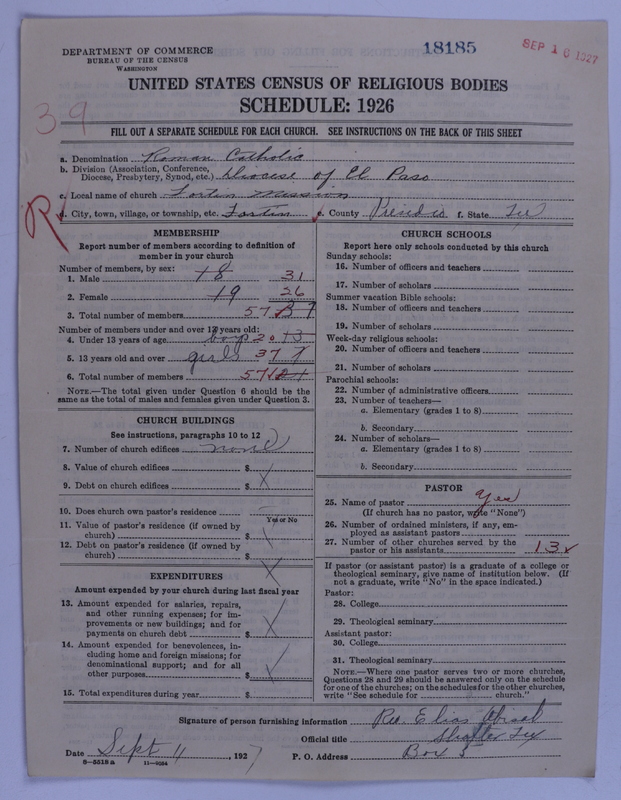 DEPARTMENT OF COMMERCE
BUREAU OF THE CENSUS
WASHINGTON
18185
SEP 16 1927
UNITED STATES CENSUS OF RELIGIOUS BODIES
SCHEDULE: 1926
39
FILL OUT A SEPARATE SCHEDULE FOR EACH CHURCH. SEE INSTRUCTIONS ON THE BACK OF THIS SHEET
a. Denomination Roman Catholic
b. Division (Association, Conference,
Diocese, Presbytery, Synod, etc.) Diocese of El Paso
c. Local name of church Fortin Mission
R
d. City, town, village, or township, etc. Fortin e. County Presidio f. State Tex
MEMBERSHIP
Report number of members according to definition of
member in your church
Number of members, by sex:
1. Male 18 31
2. Female 19 26
3. Total number of members 57
Number of members under and over 13 years old:
4. Under 13 years of age boys 20 13
5. 13 years old and over girls 37
6. Total number of members 57
NOTE.—The total given under Question 6 should be
same as the total of males and females given under Question 3.
CHURCH BUILDINGS
See instructions, paragraphs 10 to 12
7. Number of church edifices none
8. Value of church edifices $
9. Debt on church edifices $
10. Does church own pastor's residence
Yes or No
11. Value of pastor's residence (if owned by
church) $
12. Debt on pastor's residence (if owned by
church) $
EXPENDITURES
Amount expended by your church during last fiscal year
13. Amount expended for salaries, repairs,
and other running expenses; for im-
provements or new buildings; and for
payments on church debt $
14. Amount expended for benevolences, in-
cluding home and foreign missions; for
denominational support; and for all
other purposes $
15. Total expenditures during year $
CHURCH SCHOOLS
Report here only schools conducted by this church
Sunday schools:
16. Number of officers and teachers
17. Number of scholars
Summer vacation Bible schools:
18. Number of officers and teachers
19. Number of scholars
Week-day religious schools:
20. Number of officers and teachers
21. Number of scholars
Parochial schools:
22. Number of administrative officers
23. Number of teachers—
a. Elementary (grades 1 to 8)
b. Secondary
24. Number of scholars—
a. Elementary (grades 1 to 8)
b. Secondary
PASTOR
25. Name of pastor Yes
(If church has no pastor, write "None")
26. Number of ordained ministers, if any, em-
ployed as assistant pastors
27. Number of other churches served by the
pastor or his assistants 13
If pastor (or assistant pastor) is a graduate of a college or
theological seminary, give name of institution below. (If
not a graduate, write "No" in the space indicated.)
Pastor:
28. College
29. Theological seminary
Assistant pastor:
30. College
31. Theological seminary
NOTE.—Where one pastor serves two or more churches,
Questions 28 and 29 should be answered only on the schedule
for one of the churches; on the schedules for the other churches,
write "See schedule for church."
Signature of person furnishing information Rev. Elias
Official title Shafter Tex
Date Sept 11, 1927 P. O. Address Box 5
8—5518a 11—9064